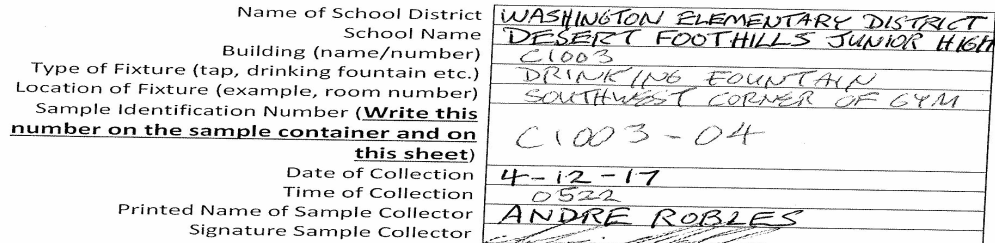 Name of School District WASHINGTON ELEMENTARY DISTRICT
School Name DESERT FOOTHILLS JUNIOR HIGH
Building (name/number) C1003
Type of Fixture (tap, drinking fountain etc.) DRINKING FOUNTAIN
Location of Fixture (example, room number) SOUTHWEST CORNER OF GYM
Sample Identification Number (Write this
number on the sample container and on
this sheet) C1003-04
Date of Collection 4-12-17
Time of Collection 0522
Printed Name of Sample Collector ANDRE ROBLES
Signature Sample Collector